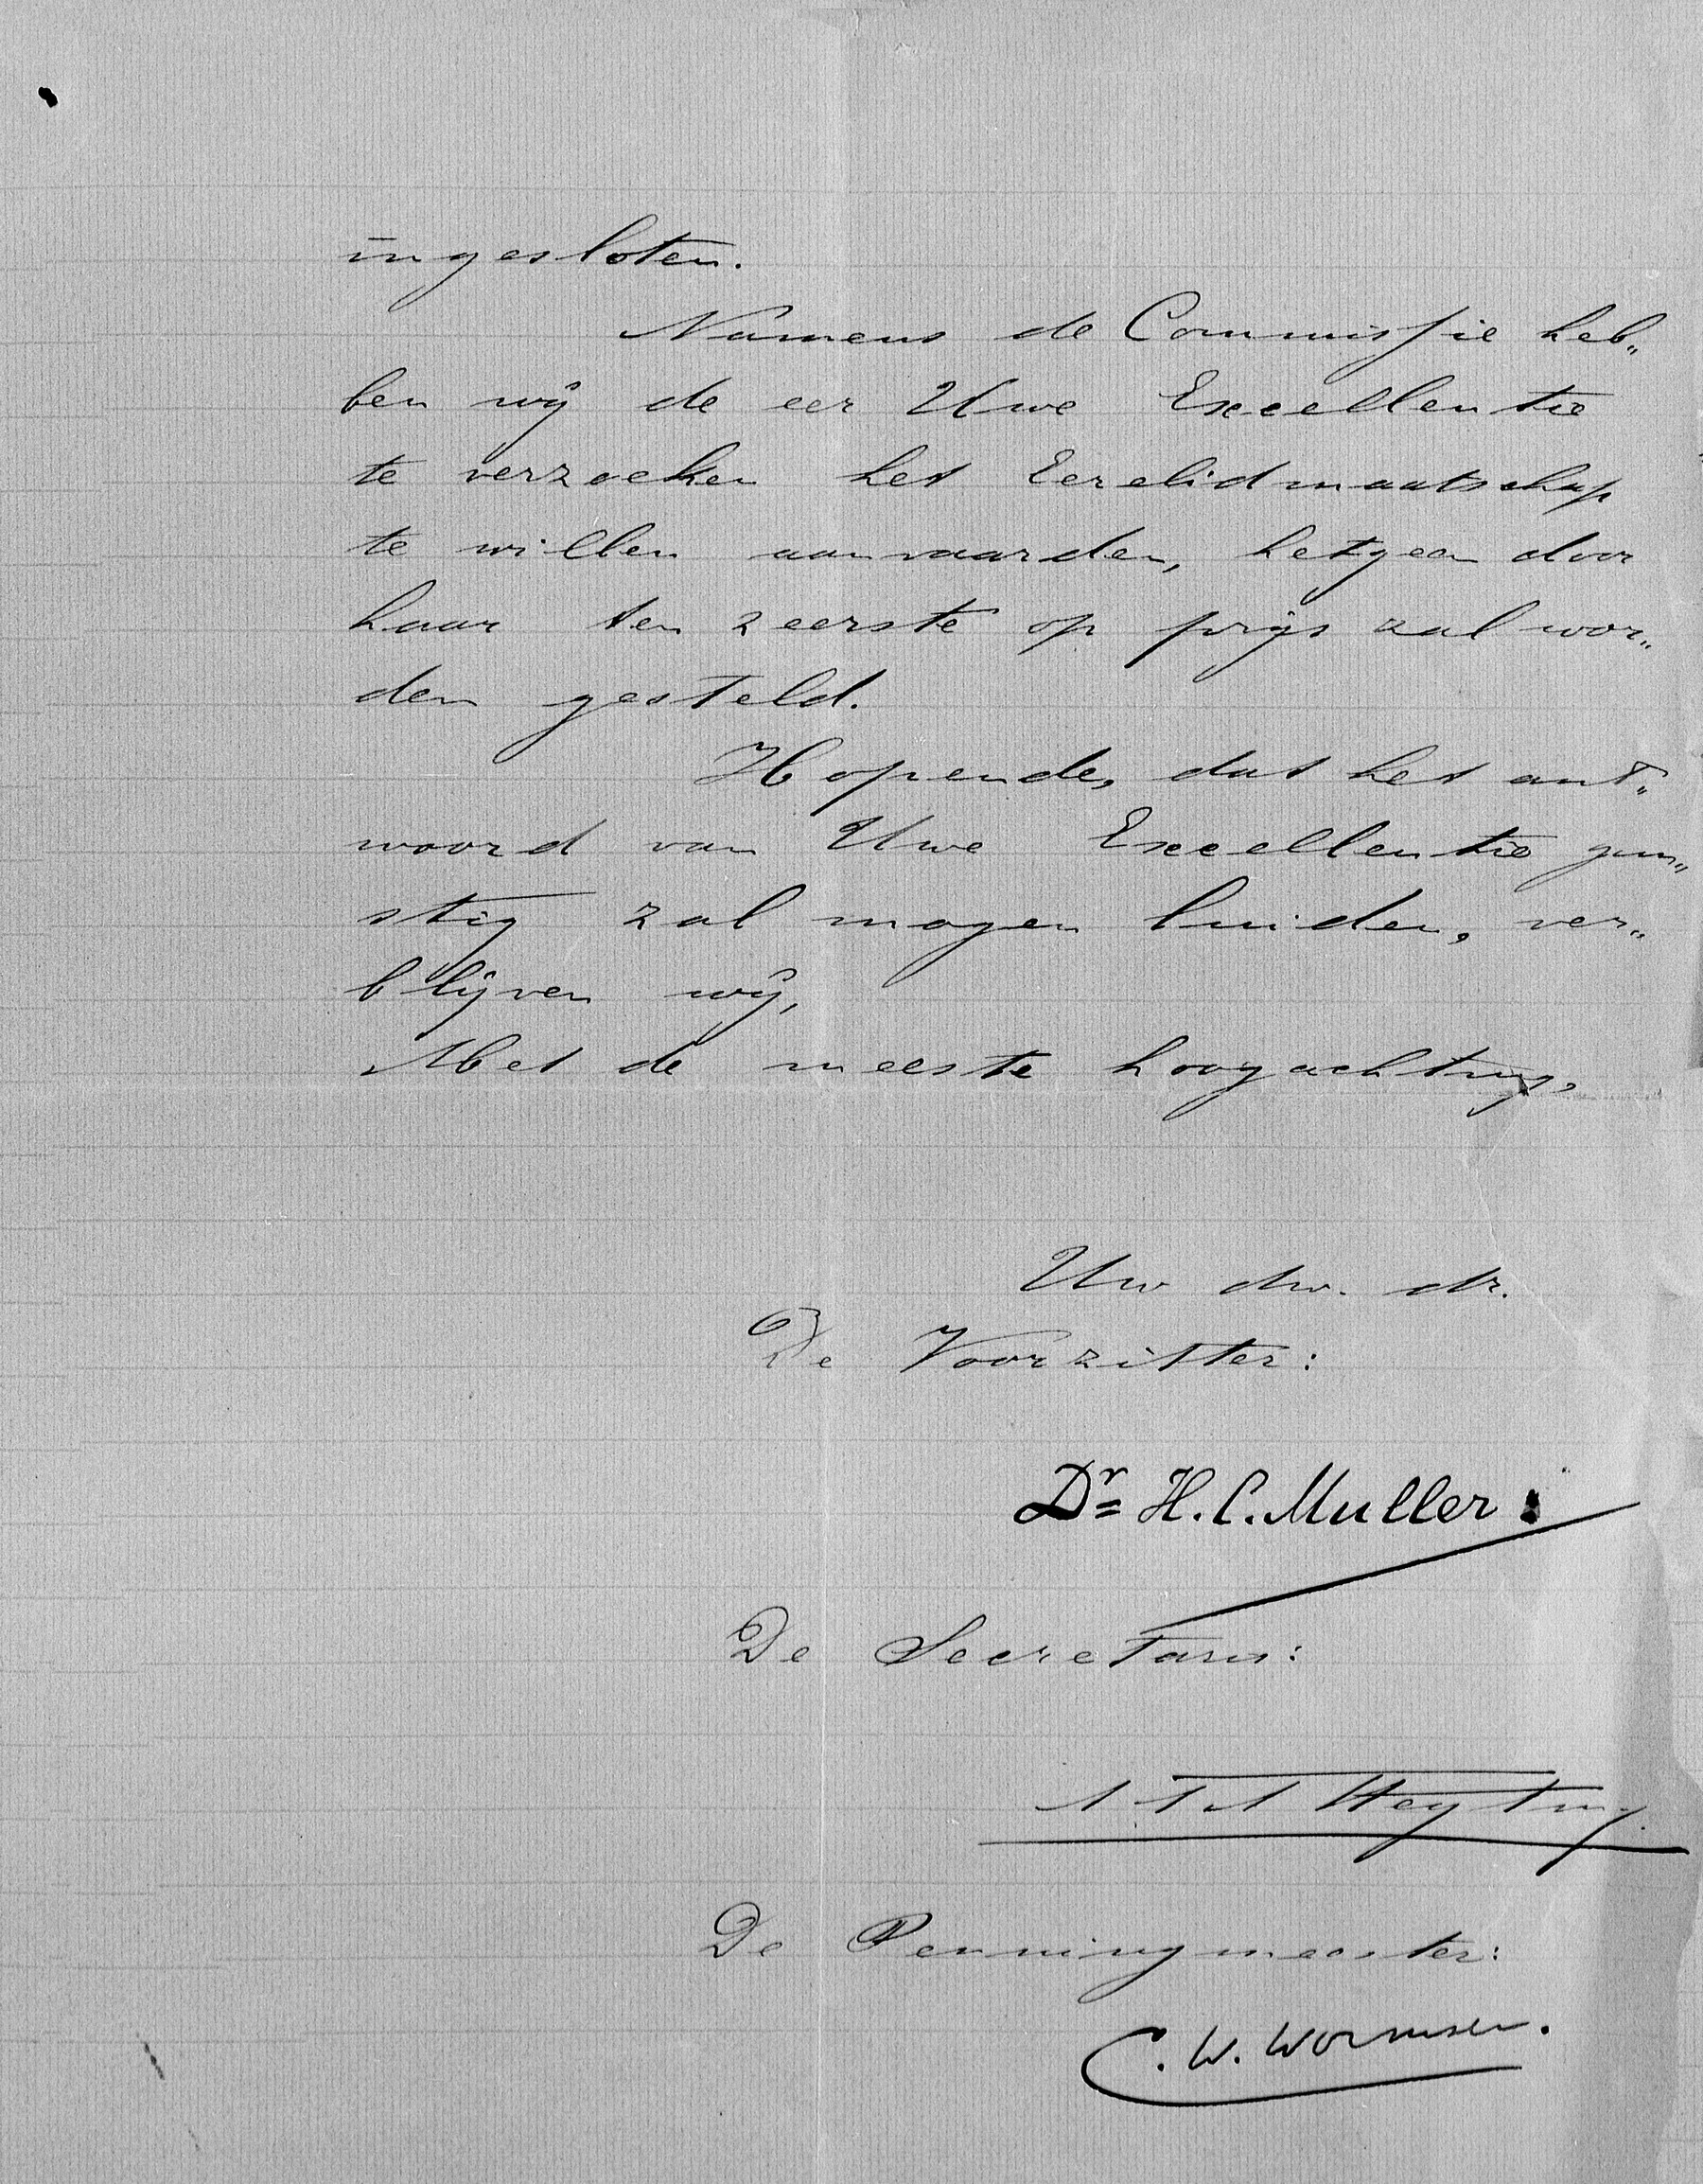 ingesloten.
Namens de Commissie heb„
ben wij de eer Uwe Excellentie
te verzoeken het Eerelidmaatschap
te willen aanvaarden, hetgeen door
haar ten zeerste op prijs zal wor„
den gesteld.
Hopende, dat het ant„
woord van Uwe Excellentie gun„
stig zal mogen luiden, ver„
blijven wij,
Met de meeste hoogachting,
Uw dw. dr.
De Voorzitter:
Dr H. C. Muller.
De Secretaris:
Heyting
De Penningmeester:
C. W. Wormser.